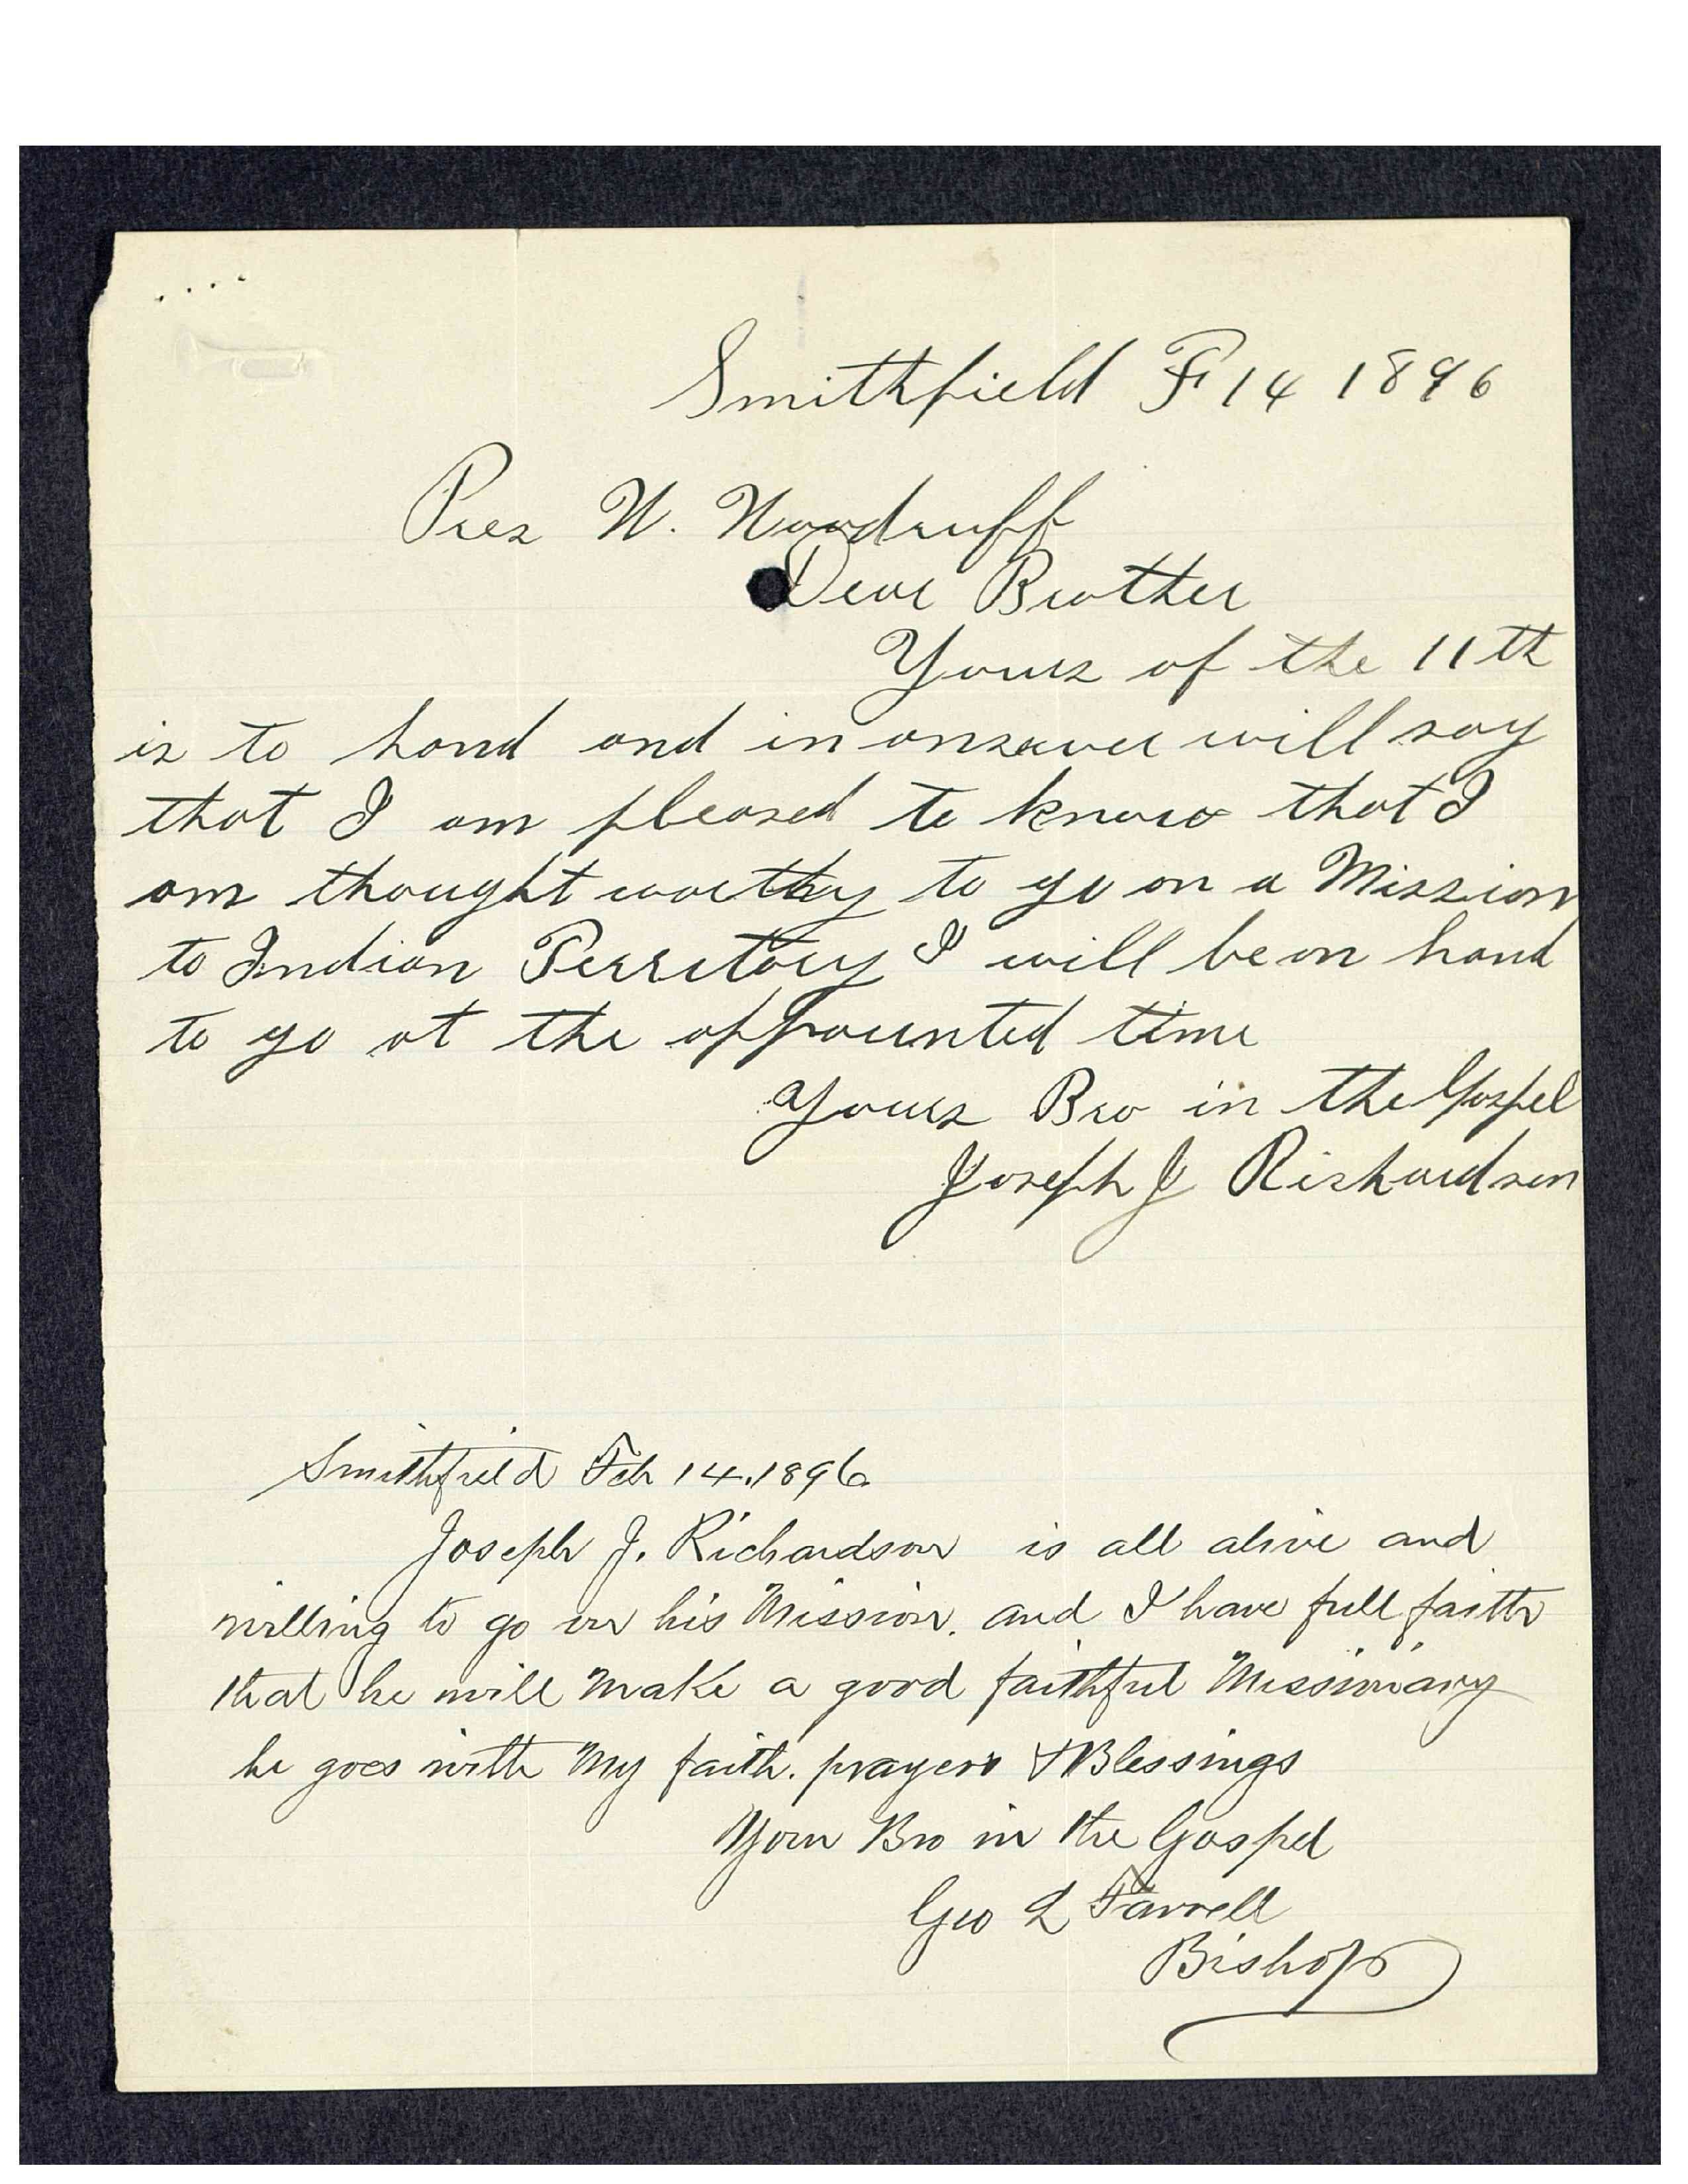 Smithfield F 14 1896
Pres W. Woodruff
Dear Brother
Yours of the 11th
is to hand and in answer will say
that I am pleased to know that I
am thought worthy to go on a Mission
to Indian Territory I will be on hand
to go at the appointed time
Yours Bro in the Gospel
Joseph J Richardson
Smithfield Feb 14, 1896
Joseph J. Richardson is all alive and
willing to go on his Mission. and I have full faith
that he will make a good faithful Missionary
he goes with my faith. prayers & Blessings
Your Bro in the Gospel
Geo L Farrell
Bishop